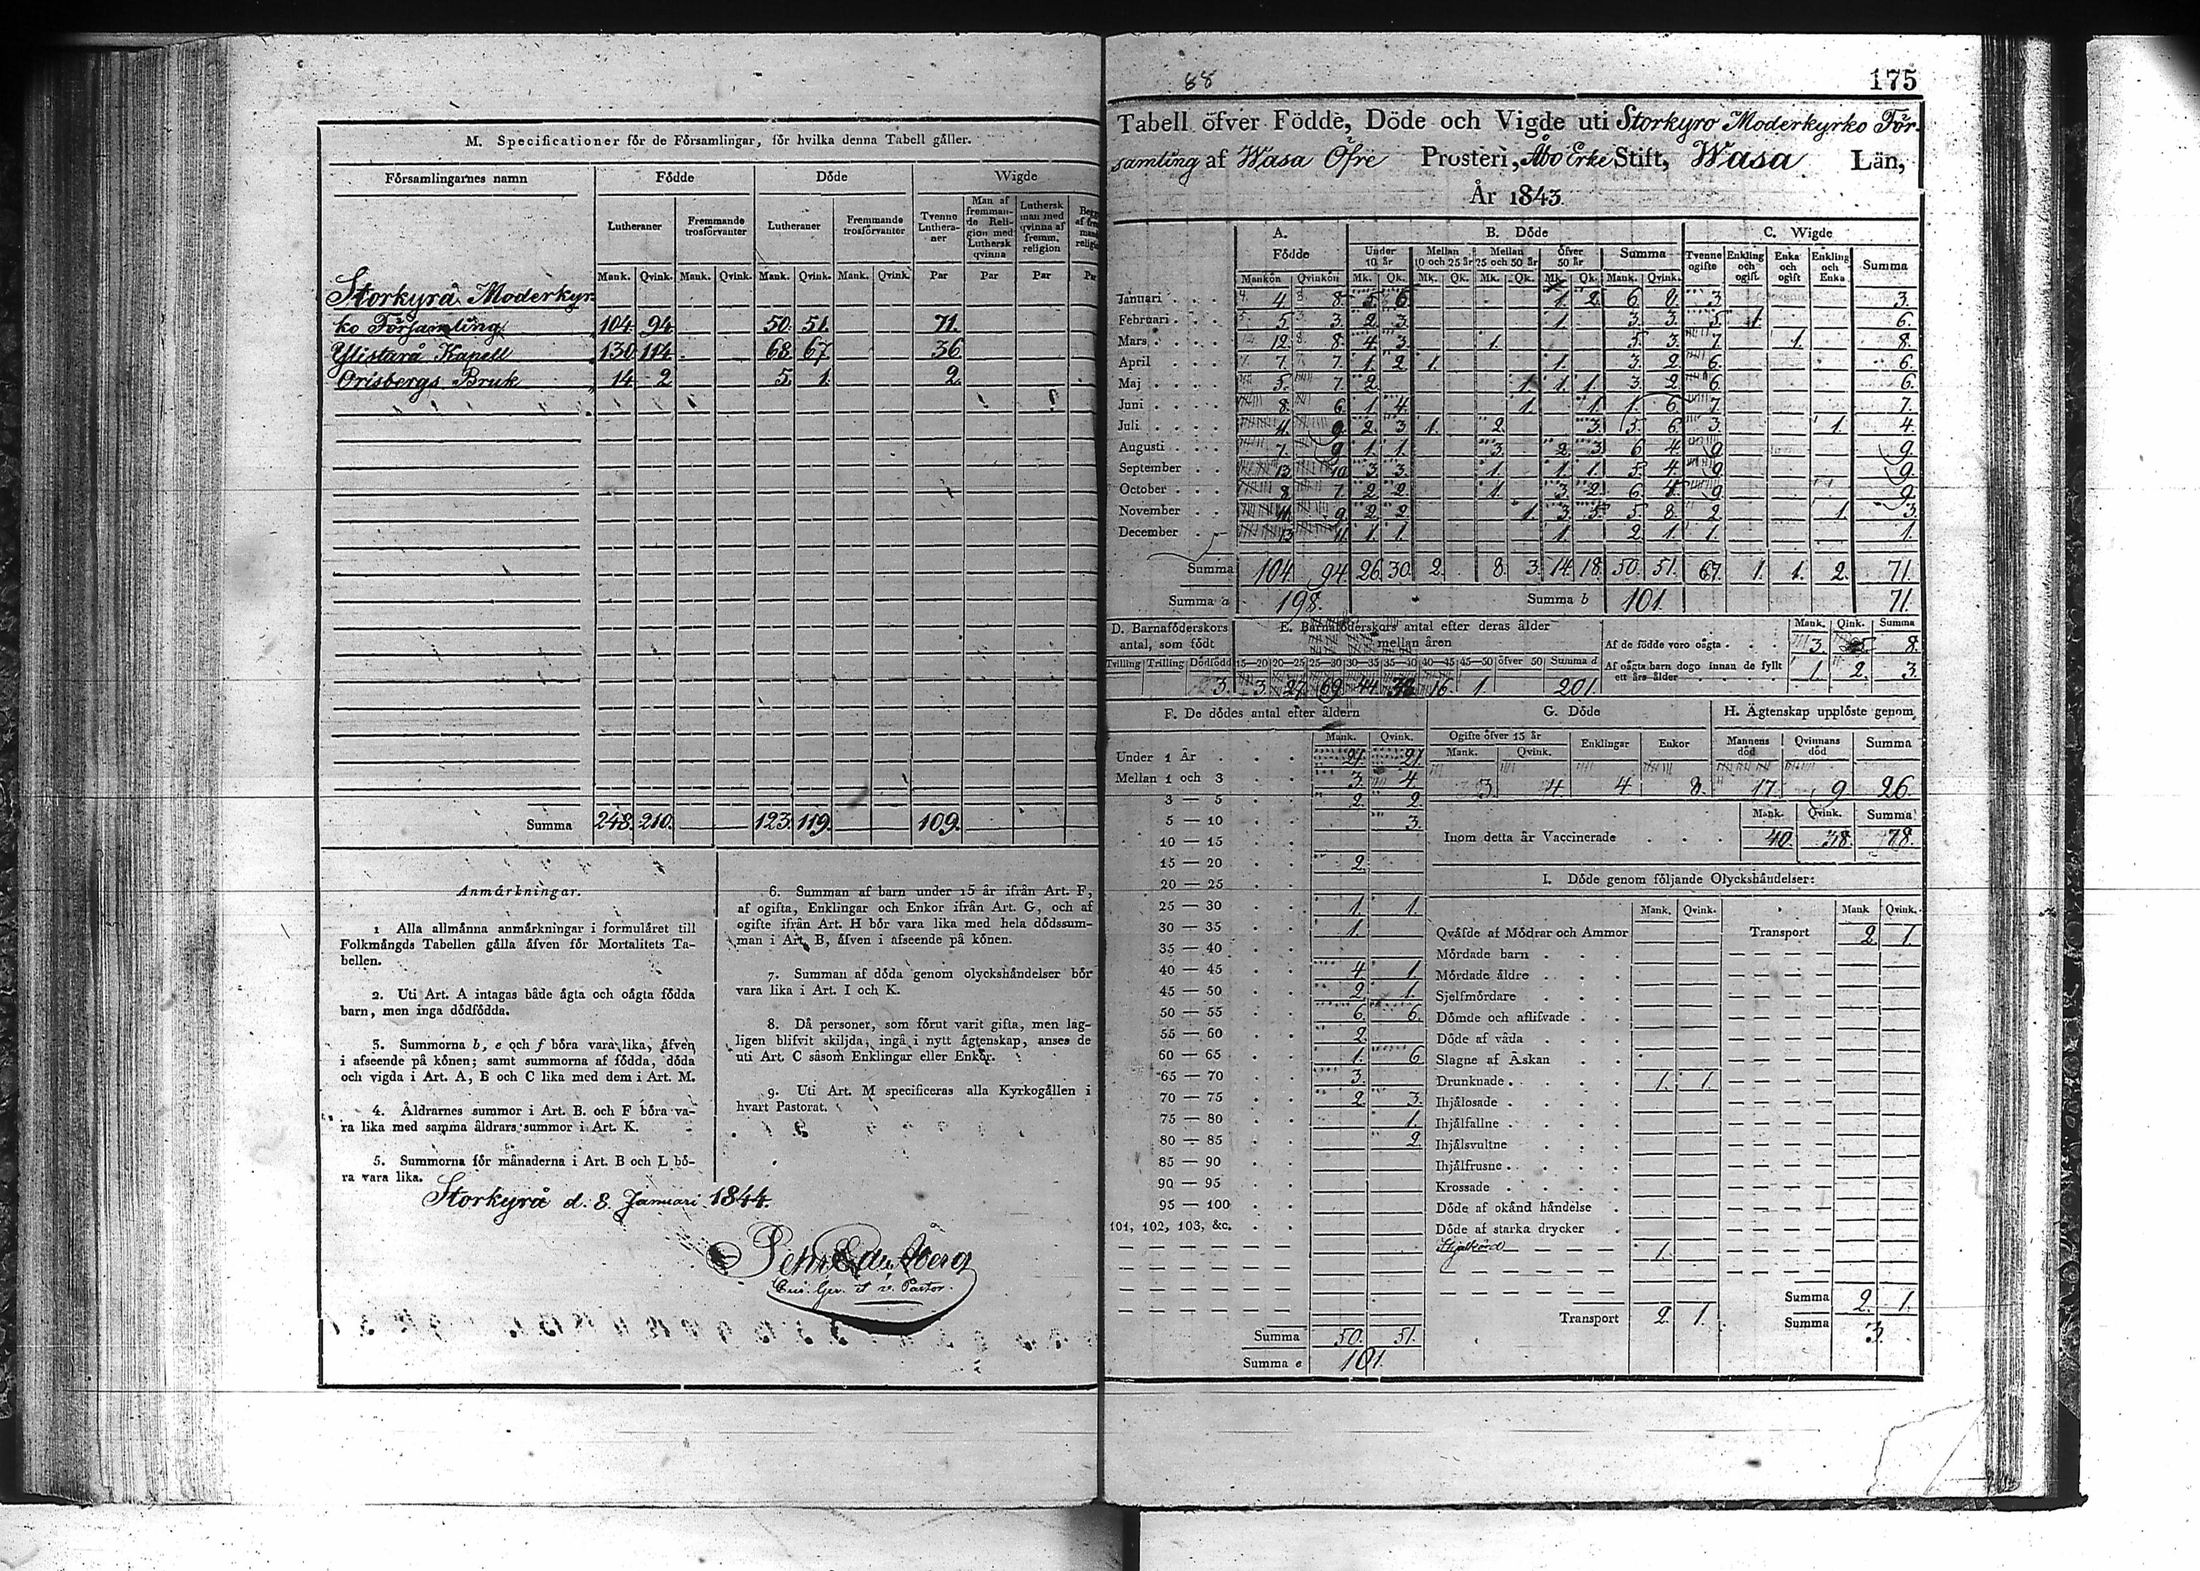 M. Specificationer för de Församlingar, för hvilka denna Tabell gäller.
Församlingarnes namn Födde Döde Wigde
Lutheraner Fremmande trosförvanter Lutheraner Fremmande trosförvanter Tvenne Lutheraner Man af fremmande Religion med Luthersk qvinna Luthersk man med qvinna af fremm. religion
Mank. Qvink. Mank. Qvink. Mank. Qvink. Mank. Qvink. Par Par Par
Storkyrå Moderkyr-
ko Församling 104. 94. 50. 51. 71.
Ylistarå Kapell 130. 114. 68. 67. 36
Orisbergs Bruk 14. 2. 5. 1. 2.
Summa 248. 210. 123. 119. 109.
Anmärkningar.
1 Alla allmänna anmärkningar i formuläret till
Folkmängds Tabellen gälla äfven för Mortalitets Ta-
bellen.
2. Uti Art. A intagas både ägta och oägta födda
barn, men inga dödfödda.
3. Summorna b, e och f böra vara lika, äfven
i afseende på könen; samt summorna af födda, döda
och vigda i Art. A, B och C lika med dem i Art. M.
4. Åldrarnes summor i Art. B. och F böra va-
ra lika med samma åldrars summor i Art. K.
5. Summorna för månaderna i Art. B och L bö-
ra vara lika.
6. Summan af barn under 15 år ifrån Art. F,
af ogifta, Enklingar och Enkor ifrån Art. G, och af
ogifte ifrån Art. H bör vara lika med hela dödssum-
man i Art. B, äfven i afseende på könen.
7. Summan af döda genom olyckshändelser bör
vara lika i Art. I och K.
8. Då personer, som förut varit gifta, men lag-
ligen blifvit skiljda, ingå i nytt ägtenskap, anses de
uti Art. C såsom Enklingar eller Enkor.
9. Uti Art. M specificeras alla Kyrkogällen i
hvart Pastorat.
Storkyrå d. 8. Januari 1844.
88
175
Tabell öfver Födde, Döde och Vigde uti Storkyro Moderkyrko För-
samling af Wasa Öfre Prosteri, Åbo Erke Stift, Wasa Län,
År 1843.
A. Födde B. Döde C. Wigde
Under 10 år Mellan 10 och 25 år Mellan 25 och 50 år Öfver 50 år Summa Tvenne ogifte Enkling och ogift Enka och ogift Enkling och Enka Summa
Mankön Qvinkön Mk. Qk. Mk. Qk. Mk. Qk. Mk. Qk. Mank. Qvink.
Januari 4 8. 5. 6. 1. 2. 6. 8. 3. 3.
Februari 5. 3. 2. 3. 1. 3. 3. 5. 1. 6.
Mars 12. 8. 4. 3. 1. 5. 3. 7. 1. 8.
April 7. 7. 1. 2. 1. 1. 3. 2. 6. 6.
Maj 5. 7. 2. 1. 1. 1. 3. 2. 6. 6.
Juni 8. 6. 1. 4. 1. 1. 1. 6. 7. 7.
Juli 11. 9. 2. 3. 1. 2. 3. 5. 6. 3. 1. 4.
Augusti 7. 9. 1. 1. 3. 2. 3. 6. 4. 9. 9.
September 13. 10. 3. 3. 1. 1. 1. 5. 4. 9. 9.
October 8. 7. 2. 2. 1. 3. 2. 6. 4. 9. 9.
November 11. 9. 2. 2. 1. 3. 5. 5. 8. 2. 1. 3.
December 13. 11. 1. 1. 1. 2. 1. 1. 1.
Summa 104. 94. 26. 30. 2. 8. 3. 14. 18. 50. 51. 67. 1. 1. 2. 71.
Summa a 198. Summa b 101. 71.
D. Barnaföderskors antal, som födt
Tvilling Trilling Dödfödd
3.
E. Barnaföderskors antal efter deras ålder
mellan åren
15—20 20—25 25—30 30—35 35—40 40—45 45—50 öfver 50 Summa d
3. 27. 69. 44. 16. 1. 201.
Mank. Qink. Summa
Af de födde voro oägta 3. 5. 8.
Af oägta barn dogo innan de fyllt
ett års ålder 1. 2. 3.
F. De dödes antal efter åldern
Mank. Qvink.
Under 1 År 21. 21.
Mellan 1 och 3 3. 4.
3 — 5 2. 2.
5 — 10 3.
10 — 15
15 — 20 2.
20 — 25
25 — 30 1. 1.
30 — 35 1.
35 — 40
40 — 45 4. 1.
45 — 50 2. 1.
50 — 55 6. 6.
55 — 60 2.
60 — 65 1. 6.
65 — 70 3.
70 — 75 2. 3.
75 — 80 1.
80 — 85 2.
85 — 90
90 — 95
95 — 100
101, 102, 103, &c.
Summa 50. 51.
Summa e 101.
G. Döde
Ogifte öfver 15 år Enklingar Enkor
Mank. Qvink.
3. 4. 4 8.
H. Ägtenskap upplöste genom
Mannens död Qvinnans död Summa
17. 9. 26.
Mank. Qvink. Summa
Inom detta år Vaccinerade 40. 38. 78.
I. Döde genom följande Olyckshändelser:
Mank. Qvink. Mank. Qvink.
Qväfde af Mödrar och Ammor Transport 2. 1.
Mördade barn
Mördade äldre
Sjelfmördare
Dömde och aflifvade
Döde af våda
Slagne af Åskan
Drunknade 1. 1.
Ihjälosade
Ihjälfallne
Ihjälsvultne
Ihjälfrusne
Krossade
Döde af okänd händelse
Döde af starka drycker
Ihjelkörd 1.
Transport 2. 1.
Summa 2. 1.
Summa 3.